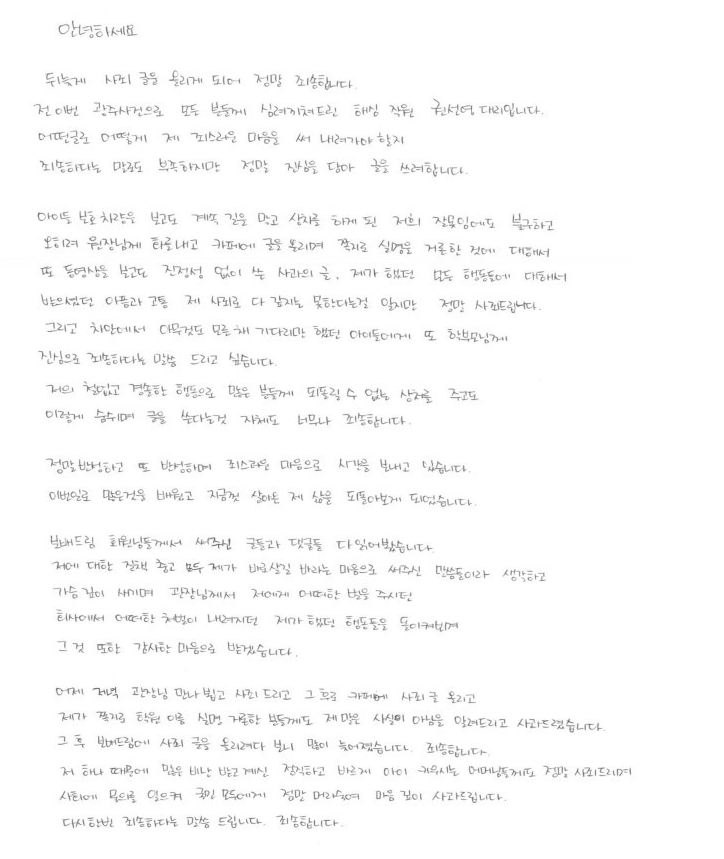 안녕하세요
뒤늦게 사죄 글을 올리게 되어 정말 죄송합니다.
전 이번 광주사건으로 모든 분들께 심려끼쳐드린 해심 직원 권선영 대리입니다.
어떤글로 어떻게 제 죄스러운 마음을 써 내려가야 할지
죄송하다는 말로도 부족하지만 정말 진심을 담아 글을 쓰려합니다.
아이들 보호차량을 보고도 계속 길을 막고 상차를 하게 된 저희 잘못임에도 불구하고
오히려 원장님께 화를내고 카페에 글을 올리며 쪽지로 실명을 거론한 것에 대해서
또 동영상을 보고도 진정성 없이 쓴 사과의 글, 제가 했던 모든 행동들에 대해서
받으셨던 아픔과 고통 제 사죄로 다 갚지는 못한다는걸 알지만 정말 사죄드립니다.
그리고 차안에서 아무것도 모른채 기다리만 했던 아이들에게 또 학부모님께
진심으로 죄송하다는 말씀 드리고 싶습니다.
저의 철없고 경솔한 행동으로 많은 분들께 되돌릴 수 없는 상처를 주고도
이렇게 숨쉬며 글을 쓴다는것 자체도 너무나 죄송합니다.
정말 반성하고 또 반성하며 죄스러운 마음으로 시간을 보내고 있습니다.
이번일로 많은것을 배웠고 지금껏 살아온 제 삶을 되돌아보게 되었습니다.
보배드림 회원님들께서 써주신 글들과 댓글들 다 읽어봤습니다.
저에 대한 질책 충고 모두 제가 바로살길 바라는 마음으로 써주신 말씀들이라 생각하고
가슴 깊이 새기며 관장님께서 저에게 어떠한 벌을 주시던
회사에서 어떠한 처벌이 내려지던 제가 했던 행동들을 돌이켜보며
그 것 또한 감사한 마음으로 받겠습니다.
어제 저녁 관장님 만나 뵙고 사죄 드리고 그 후로 카페에 사죄 글 올리고
제가 쪽지로 학원 이름 실명 거론한 분들께도 제 말은 사실이 아님을 알려드리고 사과드렸습니다.
그 후 보배드림에 사죄 글을 올리려다 보니 많이 늦어졌습니다. 죄송합니다.
저 하나 때문에 많은 비난 받고 계신 정직하고 바르게 아이 키우시는 어머님들께도 정말 사죄드리며
사회에 물의를 일으켜 국민 모두에게 정말 머리숙여 마음 깊이 사과드립니다.
다시한번 죄송하다는 말씀 드립니다. 죄송합니다.